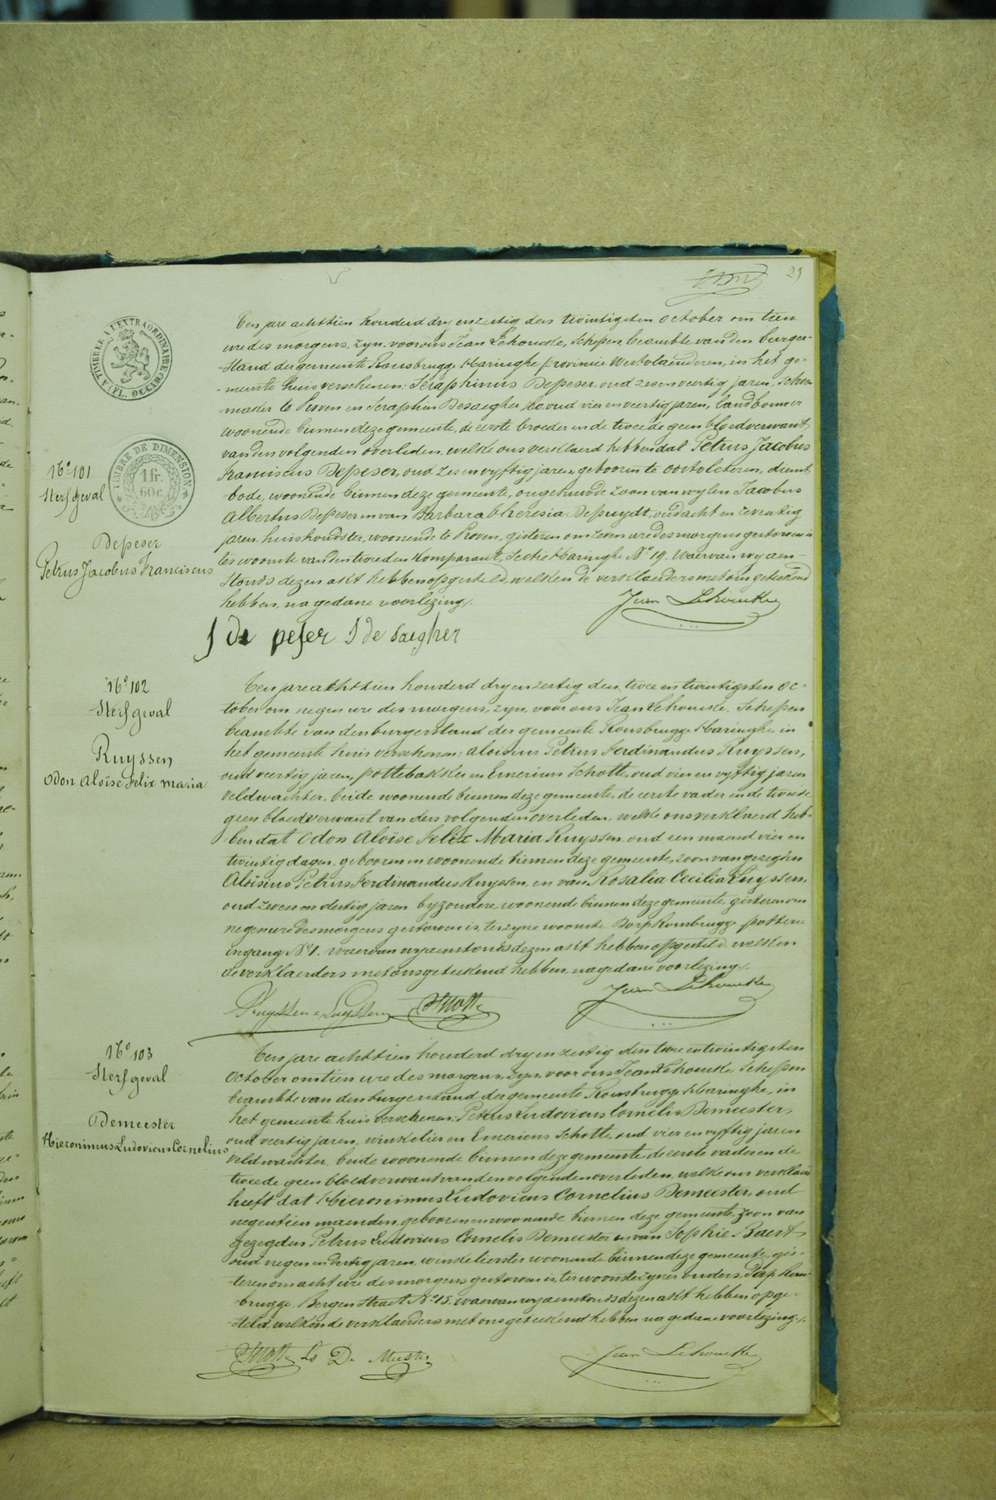 29
TIMBRE A L'EXTRAORDINAIRE
FL. OCCID.
TIMBRE DE DIMENSION
1 fr.
60 c.
N° 101
Sterfgeval
Depeser
Petrus Jacobus Franciscus
Ten jare achttien honderd dry en zestig den twintigsten October om tien
ure des morgens, zyn voor ons Jean Lehoucke, Schepen, beambte van den burger-
-stand der gemeente Rousbrugge Haringhe provincie Westvlaenderen, in het ge-
-meente huis verschenen Seraphinus Depeser, oud zeven veertig jaren, schoen-
maker te Proven en Seraphin Desaegher, oud vier en veertig jaren, landbouwer
woonende binnen deze gemeente, de eerste broeder en de tweede geen bloedverwant,
van den volgenden overleden, welke ons verklaerd hebben dat Petrus Jacobus
Franciscus Depeser, oud zes en vyftig jaren, geboren te Oostvleteren, dienst-
bode, woonende binnen deze gemeente, ongehuwde zoon van wylen Jacobus
Albertus Depeser en van Barbara Theresia Depuydt, oud acht en zeventig
jaren, huishoudster, woonende te Proven, gisteren om zeven ure des morgens gestorven is
ter woonste van den tweeden Komparant, Sectie Haringhe N° 19, waervan wy aen-
stonds dezen akt hebben opgesteld, welken de verklaerders met ons geteekend
hebben, na gedane voorlezing.
Jean Lehoucke
S de peser S de Saegher
N° 102
Sterfgeval
Ruyssen
Odon Aloïse Felix Maria
Ten jare achttien honderd dry en zestig den twee en twintigsten Oc-
tober om negen ure des morgens, zyn, voor ons Jean Lehoucke, Schepen
beambte van den burgerstand der gemeente Rousbrugge Haringhe, in
het gemeente huis verschenen Aloïsius Petrus Ferdinandus Ruyssen,
oud veertig jaren, pottebakker en Emerinus Schotte, oud vier en vyftig jaren
veldwachter, beide woonende binnen deze gemeente, de eerste vader en de tweede
geen bloedverwant van den volgenden overleden, welke ons verklaerd heb-
ben dat Odon Aloïse Felix Maria Ruyssen, oud een maand vier en
twintig dagen, geboren en woonende binnen deze gemeente, zoon van gezegden
Aloïsius Petrus Ferdinandus Ruyssen, en van Rosalia Cecilia Luyssen,
oud zeven en dertig jaren byzondere, woonende binnen deze gemeente, gisteren om
negen ure des morgens gestorven is, ter zyne woonste Dorp Rousbrugge potten-
ingang N° 1, waervan wy aenstonds dezen akt hebben opgesteld, welken
de verklaerders met ons geteekend hebben, na gedane voorlezing.
Ruyssen Luyssen Schotte Jean Lehoucke
N° 103
Sterfgeval
Demeester
Hieronimus Ludovicus Cornelius
Ten jare achttien honderd dry en zestig den twee en twintigsten
October om tien ure des morgens, zyn, voor ons Jean Lehoucke, Schepen
beambte van den burgerstand der gemeente Rousbrugge Haringhe, in
het gemeente huis verschenen, Petrus Ludovicus Cornelis Demeester,
oud veertig jaren, winkelier en Emerinus Schotte, oud vier en vyftig jaren
veldwachter, beide woonende binnen deze gemeente, de eerste vader en de
tweede geen bloedverwant van den volgenden overleden, welke ons verklaerd
heeft dat Hieronimus Ludovicus Cornelius Demeester, oud
negentien maenden, geboren en woonende binnen deze gemeente, zoon van
gezegden Petrus Ludovicus Cornelis Demeester en van Sophie Baert
oud negen en dertig jaren, winkelierster woonende binnen deze gemeente, gis-
teren om acht ure des morgens gestorven is, ter woonste zyner ouders, Dorp Rous-
brugge, Bergen straet N° 15, waervan wy aenstonds dezen akt hebben opge-
steld, welken de verklaerders met ons geteekend hebben na gedane voorlezing.
Schotte Ls De Meester Jean Lehoucke